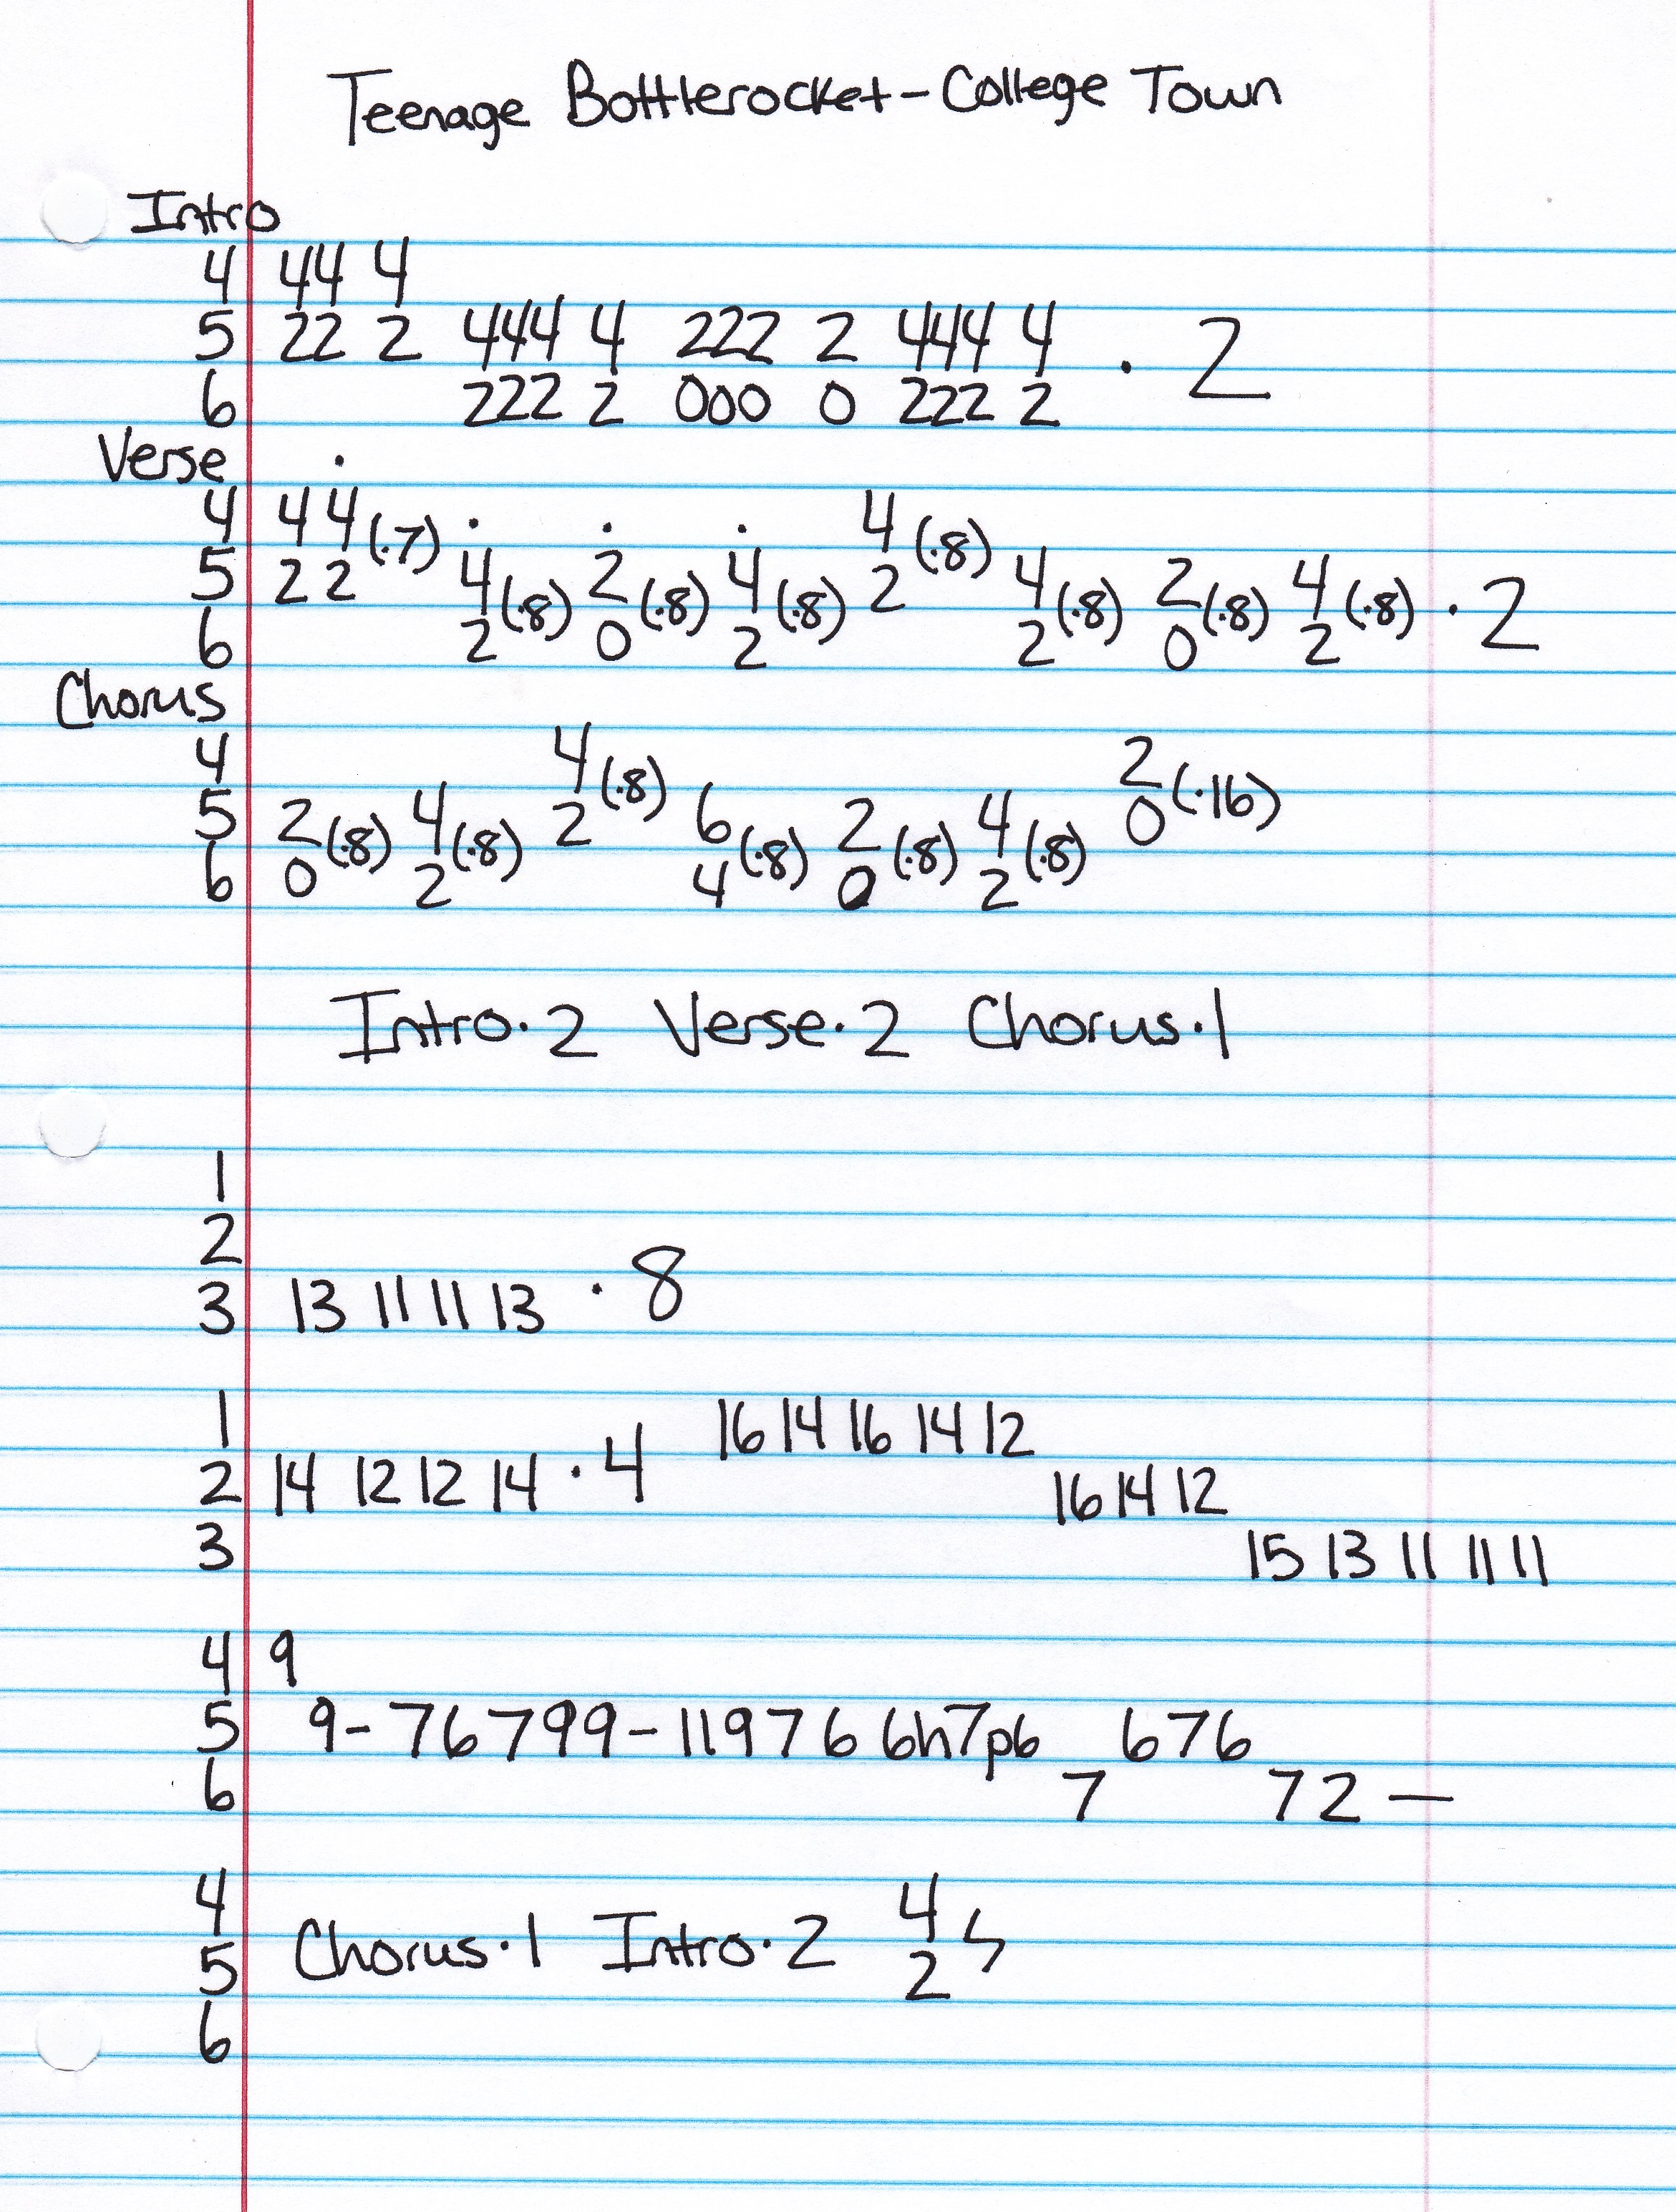 Teenage Bottlerocket - College Town
Intro
4 44 4
5 22 2 444 4 222 2 444 4 · 2
6 222 2 000 0 222 2
Verse
4 4 4 (·7) 4 (·8)
5 2 2 4 (·8) 2 (·8) 4 (·8) 2 4 (·8) 2 (·8) 4 (·8) · 2
6 2 0 2 2 0 2
Chorus
4 4 (·8) 2 (·16)
5 2 (·8) 4 (·8) 2 6 (·8) 2 (·8) 4 (·8) 0
6 0 2 4 0 2
Intro · 2 Verse · 2 Chorus · 1
1
2
3 13 11 11 13 · 8
1 16 14 16 14 12
2 14 12 12 14 · 4 16 14 12
3 15 13 11 11 11
4 9
5 9 - 7 6 7 9 9 - 11 9 7 6 6h7p6 6 7 6
6 7 7 2 —
4 4
5 Chorus · 1 Intro · 2 2
6